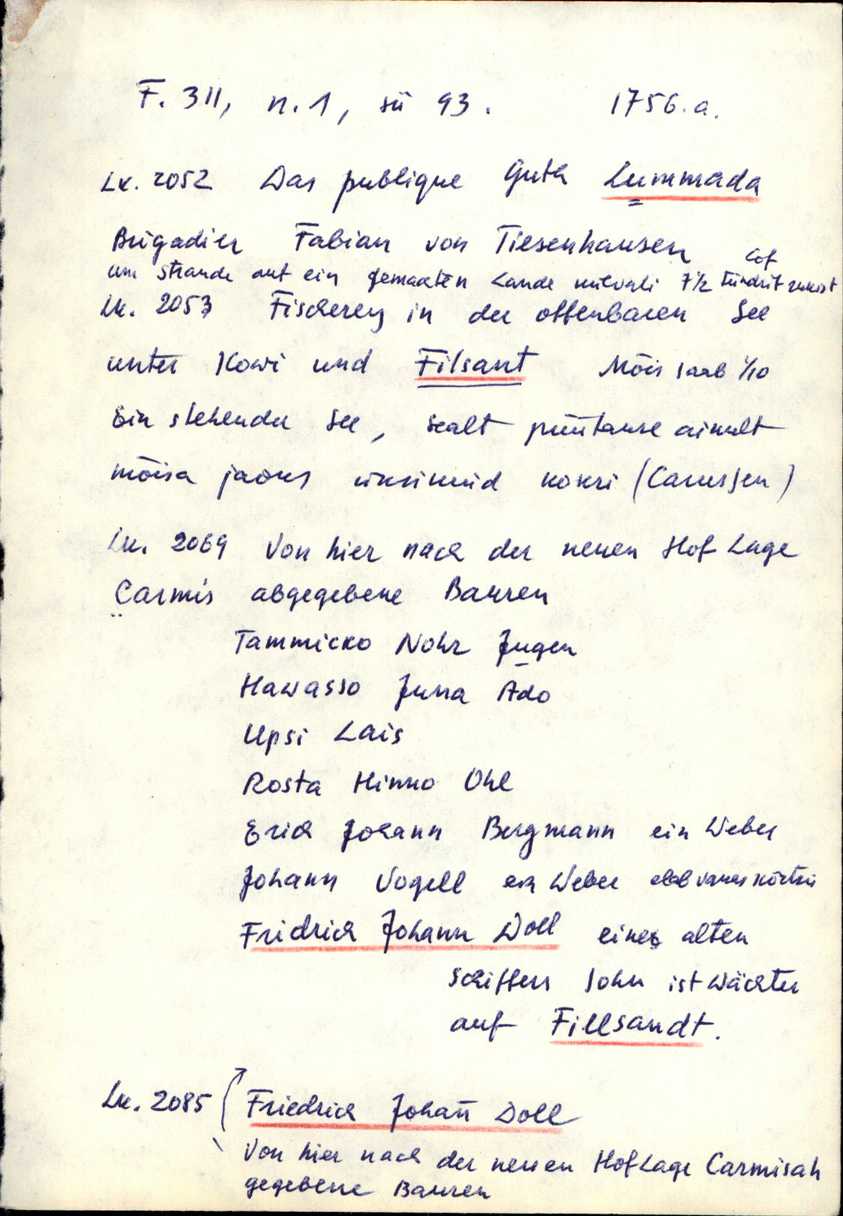 F. 311, n. 1, sü 93. 1756. a.
Lk. 2052 Das publique Guth Lummada
Brigadier Fabian von Tiesenhausen
am strande auf ein gemachten Lande 7 1/2
Lk. 2053 Fischerey in der offenbaren See
unter Kowi und Filsant Mõis saab 1/10
Ein stehender See, sealt püütakse ainult
mõisa jaoks kokri (Carussen)
Lk. 2069 Von hier nach der neuen Hof Lage
Carmis abgegebene Bauren
Tammicko Nohr Jugen
Hawasso Juna Ado
Upsi Lais
Rosta Hinno Ohl
Erich Johann Bergmann ein Weber
Johann Vogell ein Weber elab vanas kõrtsis
Fridrich Johann Doll eines alten
Schiffers Sohn ist Wächter
auf Fillsandt.
Lk. 2085 Friedrich Johañ Doll
Von hier nach der neuen Hoflage Carmisah
gegebene Bauren